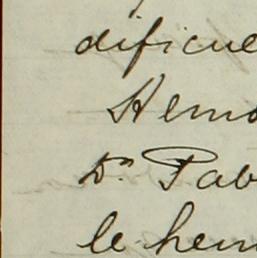 dificul
Hemo
Dn Pab
le hem